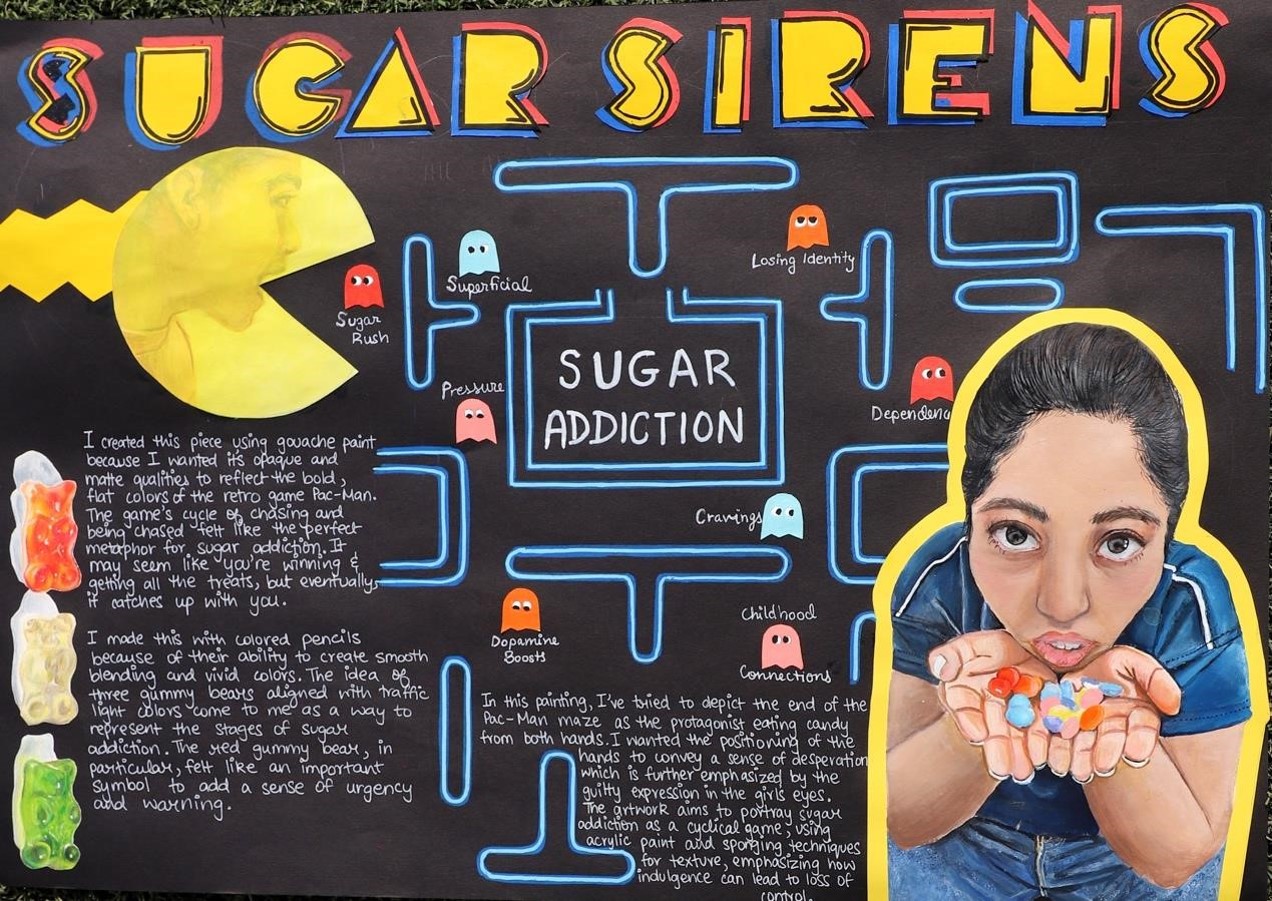 SUGAR SIRENS
Superficial
Losing Identity
Sugar
Rush
SUGAR
ADDICTION
Pressure
Dependenc
Cravings
Dopamine
Boosts
Childhood
Connections
I created this piece using gouache paint
because I wanted it's opaque and
matte qualities to reflect the bold,
flat colors of the retro game Pac-Man.
The game's cycle of chasing and
being chased felt like the perfect
metaphor for sugar addiction. It
may seem like you're winning &
getting all the treats, but eventually,
it catches up with you.
I made this with colored pencils
because of their ability to create smooth
blending and vivid colors. The idea of
three gummy bears aligned with traffic
light colors come to me as a way to
represent the stages of sugar
addiction. The red gummy bear, in
particular, felt like an important
symbol to add a sense of urgency
and warning.
In this painting, I've tried to depict the end of the
Pac-Man maze as the protagonist eating candy
from both hands. I wanted the positioning of the
hands to convey a sense of desperation
which is further emphasized by the
guilty expression in the girls eyes.
The artwork aims to portray sugar
addiction as a cyclical game, using
acrylic paint and sponging techniques
for texture, emphasizing how
indulgence can lead to loss of
control.